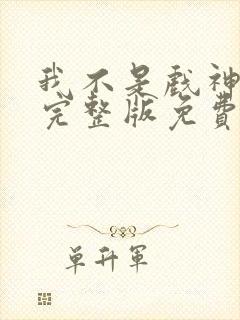 我不是戲神
完整版免費
单升軍